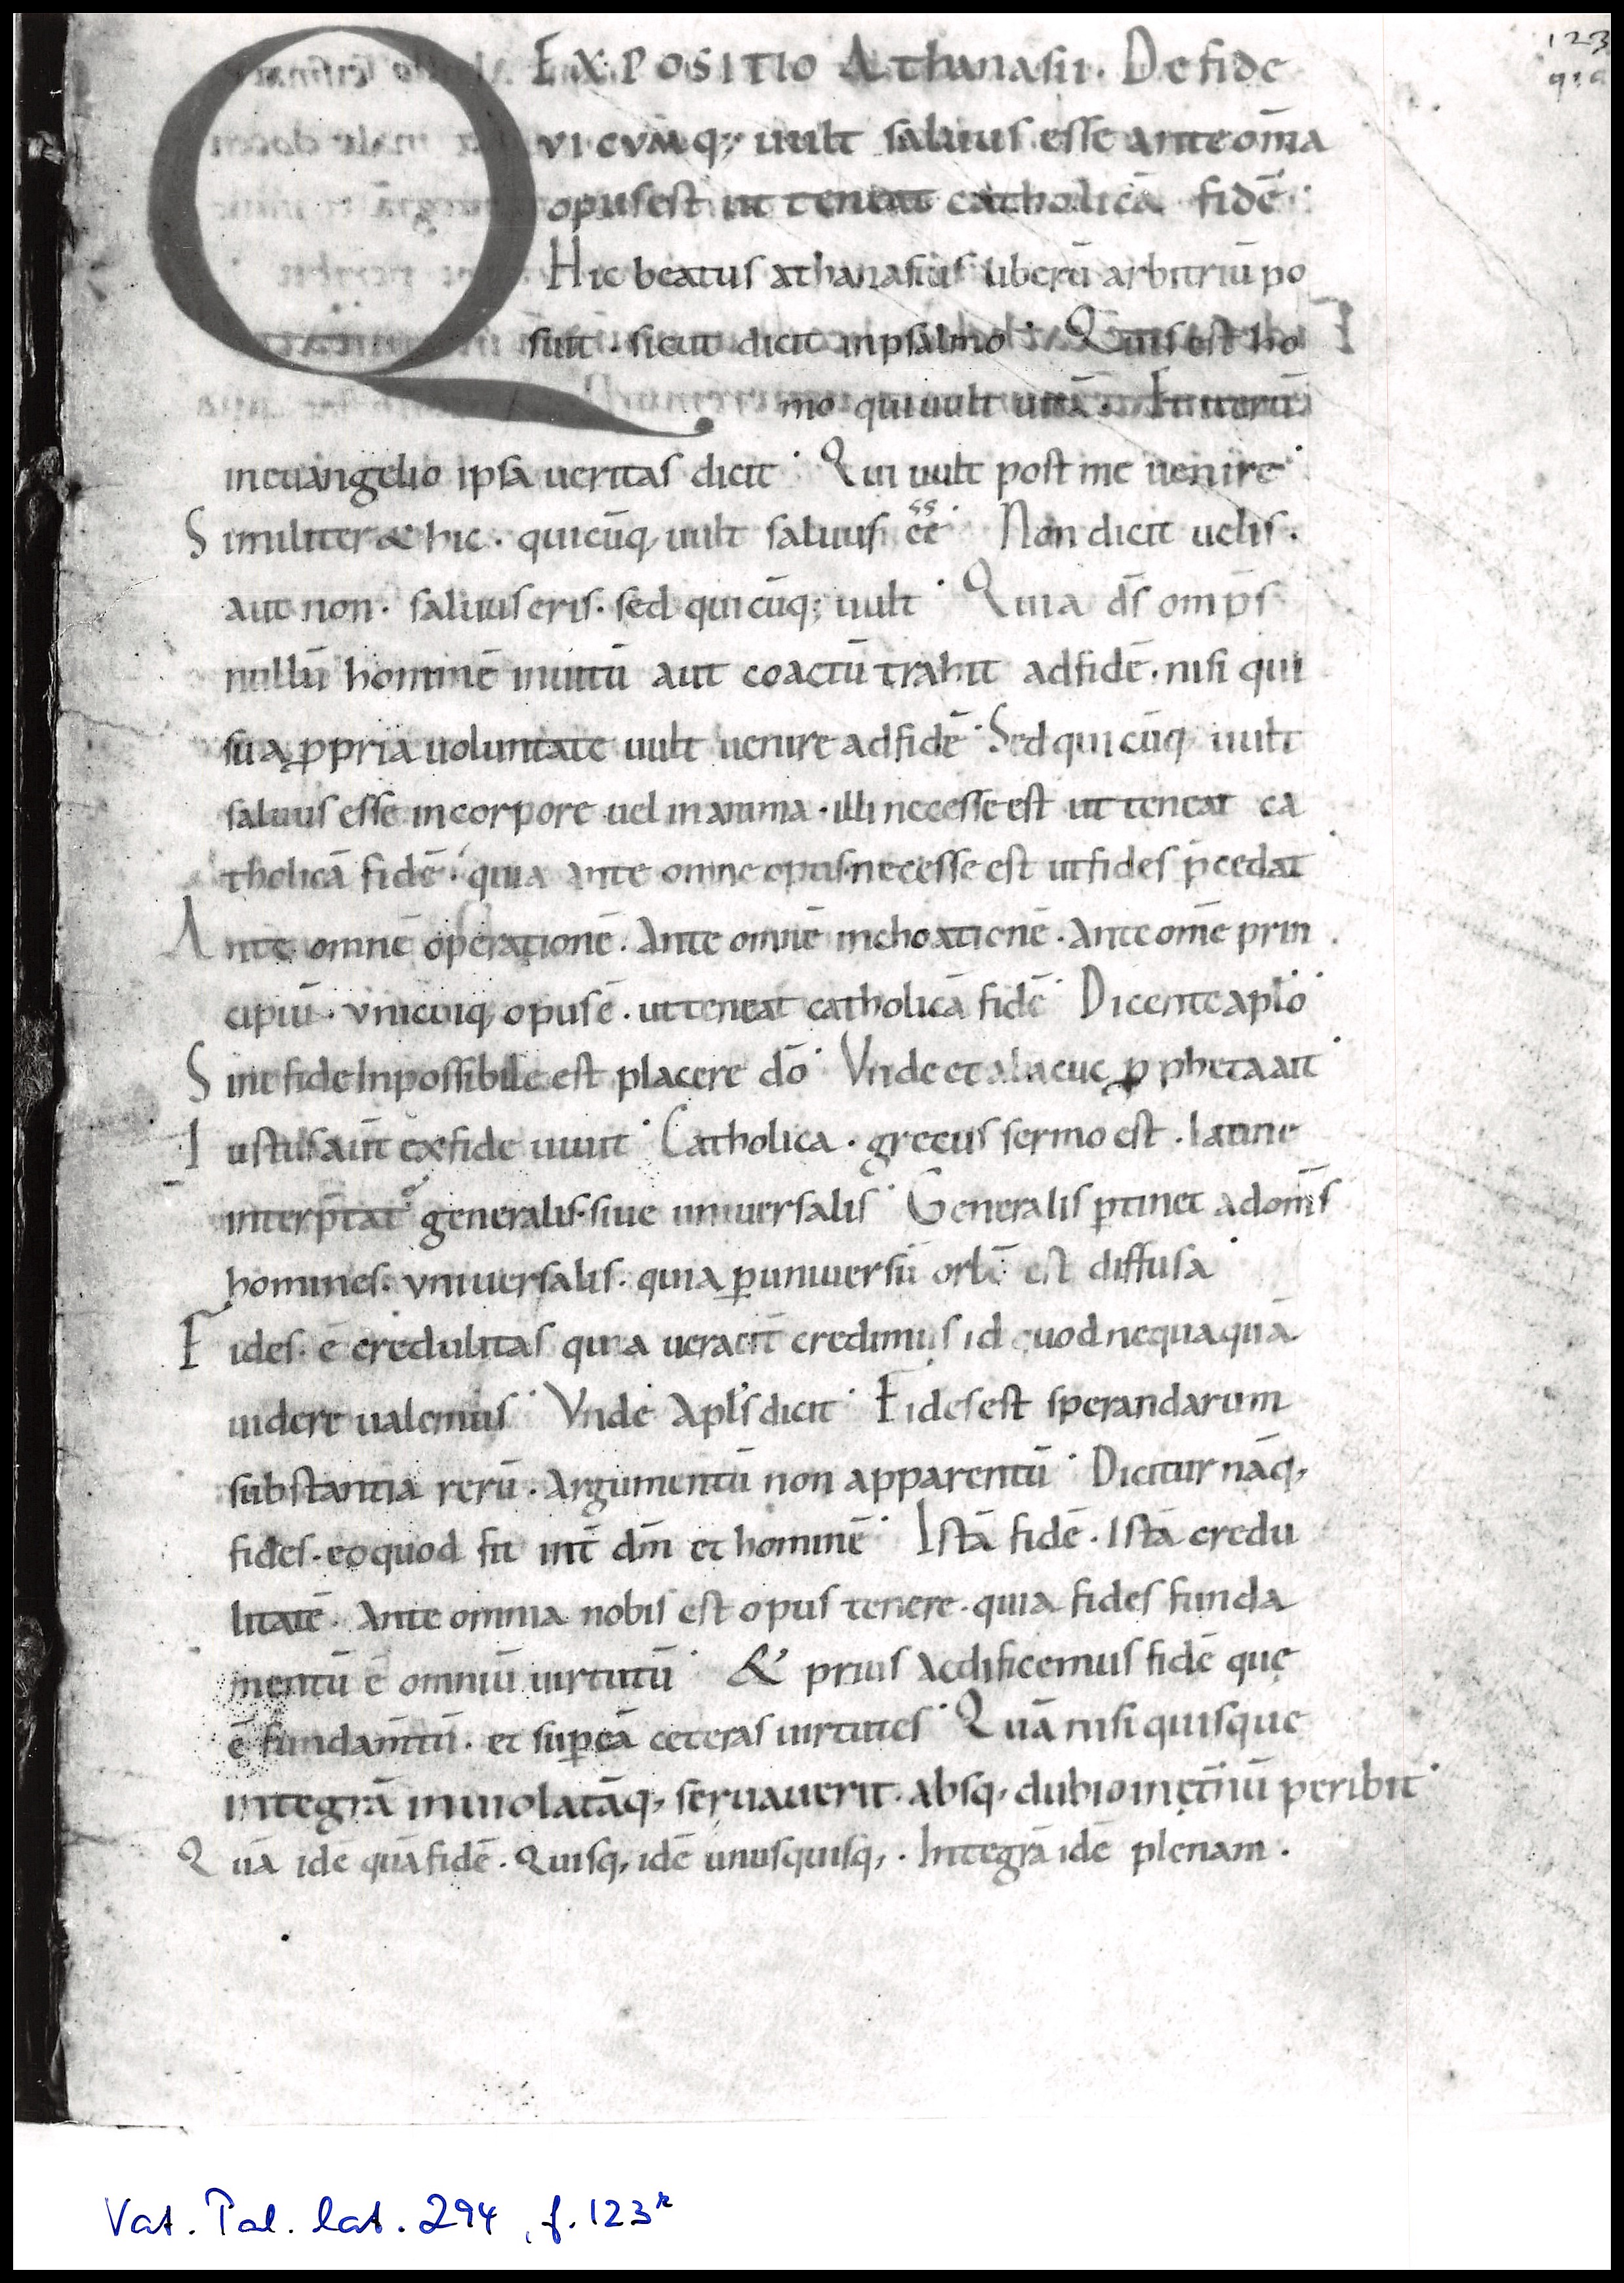 123
EXPOSITIO Athanasii. De fide
QVICVMq; uult saluus esse ante om̄a
opus est ut teneat catholicā fidē
Hic beatus athanasius liberū arbitriū po
suit. sicut dicit in psalmo. Quis est ho
mo qui uult uitā. Et iterū
in euangelio ipsa ueritas dicit. Qui uult post me uenire.
Similiter & hic. quicūq, uult saluus ee͞ ss. Non dicit uelis.
aut non. saluus eris. sed quicūq; uult. Quia d̄s om̄ps
nullū hominē inuitū aut coactū trahit ad fidē. nisi qui
sua ꝓpria uoluntate uult uenire ad fidē. Sed quicūq, uult
saluus esse in corpore uel in anima. illi necesse est ut teneat ca
tholicā fidē. quia ante omne opus necesse est ut fides p̄cedat
Ante omnē operationē. Ante omnē inchoationē. Ante om̄e prin
cipiū. vnicuiq, opus ē. ut teneat catholicā fidē. Dicente aplō
Sine fide inpossibile est placere dō. Vnde et abacuc ꝓpheta ait.
Iustus aut̄ ex fide uiuit. Catholica. grecus sermo est. latine
interp̄tat̄ generalis. siue uniuersalis. Generalis ꝑtinet ad om̄s
homines. vniuersalis. quia ꝑ uniuersū orbē est diffusa.
Fides. ē credulitas quia ueracit̄ credimus id quod nequaquā
uidere ualemus. Vnde Apl̄s dicit. Fides est sperandarum
substantia rerū. Argumentū non apparentū. Dicitur nāq,
fides. eo quod fit int̄ dm̄ et hominē. Istā fidē. Istā credu
litatē. Ante omnia nobis est opus tenere. quia fides funda
mentū ē omniū uirtutū. & prius aedificemus fidē quę
ē fundam̄tū. et suꝑ eā ceteras uirtutes. Quā nisi quisque
integrā inuiolatāq, seruauerit. absq, dubio in ęt̄nū peribit.
Quā idē quā fidē. Quisq, idē unusquisq,. Integrā idē plenam.
Vat. Pal. lat. 294, f. 123ʳ